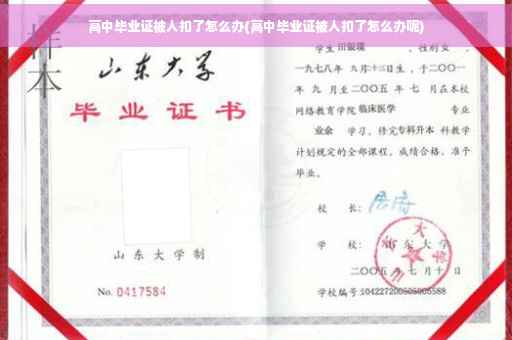 高中毕业证被人扣了怎么办(高中毕业证被人扣了怎么办呢)
样本
山东大学
毕业证书
山东大学制
No. 0417584
学生 田银瑞 ，性别女，
一九七八年 九月十三日生，于二〇〇一
年 九 月至二〇〇五 年 七 月在本校
网络教育学院 临床医学 专业
业余 学习，修完 专科升本 科教学
计划规定的全部课程，成绩合格，准予
毕业。
校 长：
学 校：山东大学
二〇〇五 年 七 月 十 日
学校编号:104227200505005588